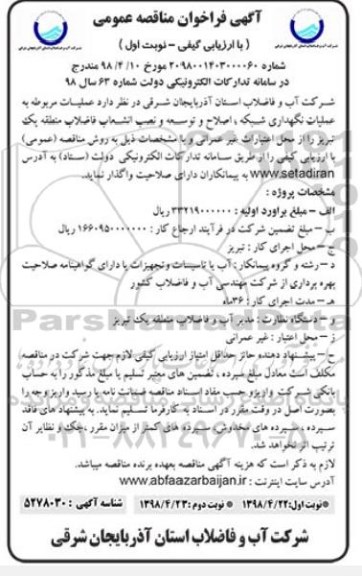 آگهی فراخوان مناقصه عمومی
( با ارزیابی کیفی - نوبت اول )
شماره ۲۰۹۸۰۰۱۴۰۳۰۰۰۰۶۰ مورخ ۹۸/۴/۱۰ مندرج
در سامانه تدارکات الکترونیکی دولت شماره ۶۳ سال ۹۸
شرکت آب و فاضلاب استان آذربایجان شرقی در نظر دارد عملیات مربوطه به
عملیات نگهداری شبکه ، اصلاح و توسعه و نصب انشعاب فاضلاب منطقه یک
تبریز را از محل اعتبارات غیر عمرانی و با مشخصات ذیل به روش مناقصه (عمومی)
با ارزیابی کیفی را از طریق سامانه تدارکات الکترونیکی دولت (ستاد) به آدرس
www.setadiran به پیمانکاران دارای صلاحیت واگذار نماید.
مشخصات پروژه :
الف - مبلغ براورد اولیه : ۳۳۲۱۹۰۰۰۰۰۰ ریال
ب - مبلغ تضمین شرکت در فرآیند ارجاع کار : ۱۶۶۰۹۵۰۰۰۰۰۰ ریال
ج - محل اجرای کار : تبریز
د - رشته و گروه پیمانکار : آب یا تاسیسات وتجهیزات یا دارای گواهینامه صلاحیت
بهره برداری از شرکت مهندسی آب و فاضلاب کشور
هـ - مدت اجرای کار : ۳۶ماه
و - دستگاه نظارت : مدیر آب و فاضلاب منطقه یک تبریز
ز - محل اعتبار : غیر عمرانی
ح - پیشنهاد دهنده حائز حداقل امتیاز ارزیابی کیفی لازم جهت شرکت در مناقصه
مکلف است معادل مبلغ سپرده ، تضمین های معتبر تسلیم یا مبلغ مذکور را به حساب
بانکی شرکت واریز و حسب مفاد اسناد مناقصه ضمانت نامه یا رسید واریز وجه را
بصورت اصل در وقت مقرر در اسناد به کارفرما تسلیم نماید. به پیشنهاد های فاقد
سپرده ، سپرده های مخدوش، سپرده های کمتر از میزان مقرر ،چک و نظایر آن
ترتیب اثر نخواهد شد.
لازم به ذکر است که هزینه آگهی مناقصه بعهده برنده مناقصه میباشد.
آدرس سایت اینترنت : www.abfaazarbaijan.ir
*نوبت اول:۱۳۹۸/۴/۲۲ *نوبت دوم : ۱۳۹۸/۴/۲۳ شناسه آگهی : ۵۲۷۸۰۳۰
شرکت آب و فاضلاب استان آذربایجان شرقی
ParsNamadData
۰۲۱-۸۸۳۴۹۶۷۰-۵